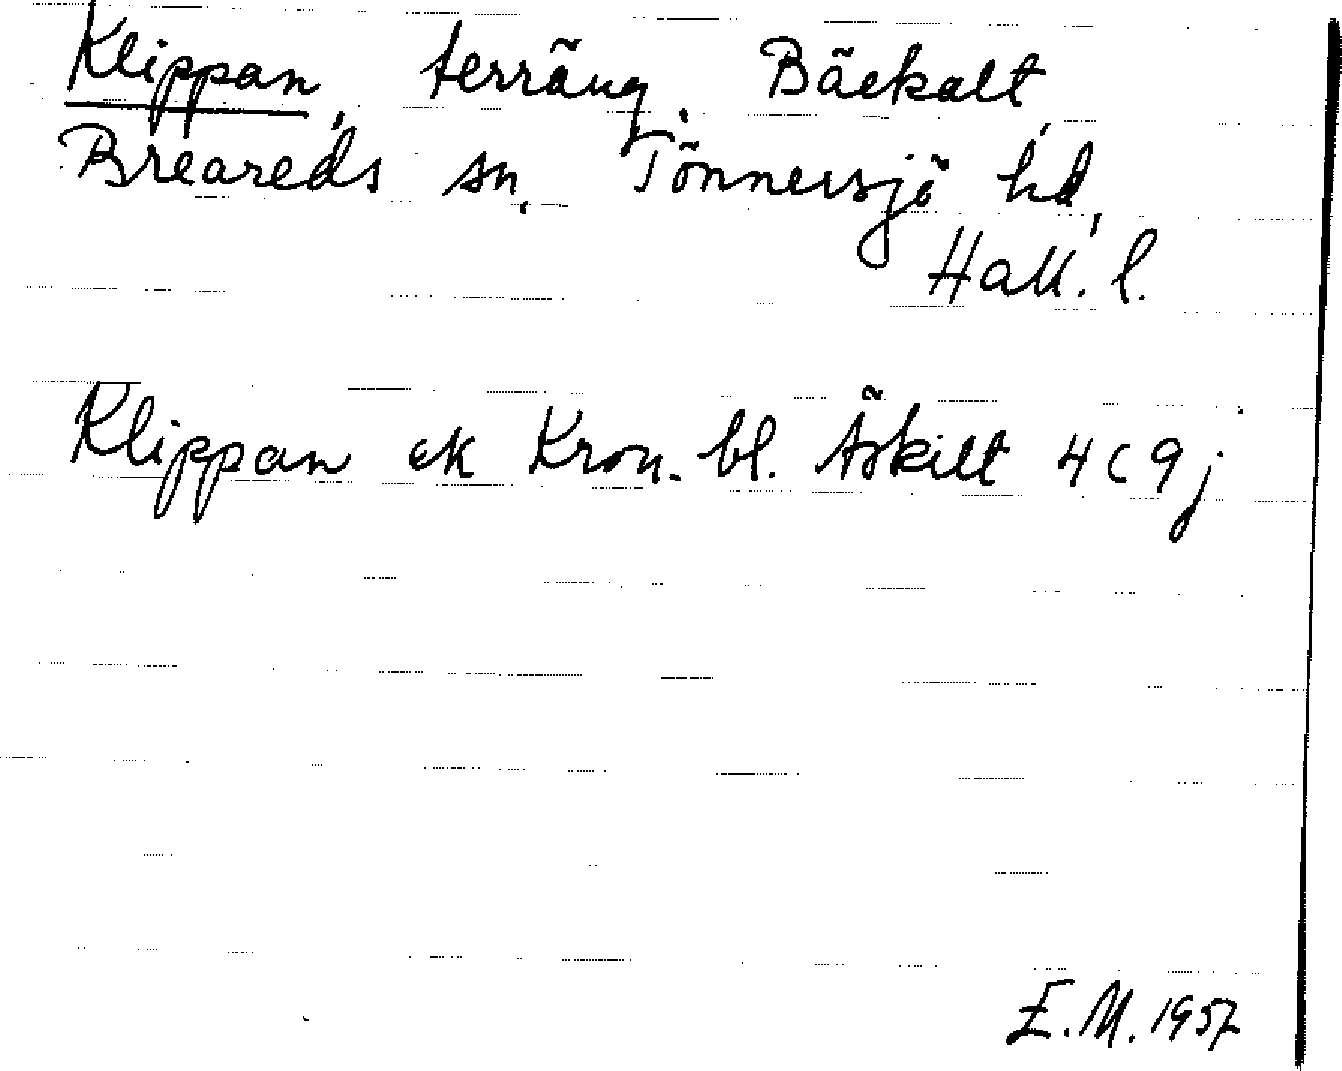 Klippan, terräng. Bäckalt,
Breareds sn, Tönnersjö hd,
Hall. l.
Klippan ek Kron. bl. Äskilt 4C9j
E.M. 1957